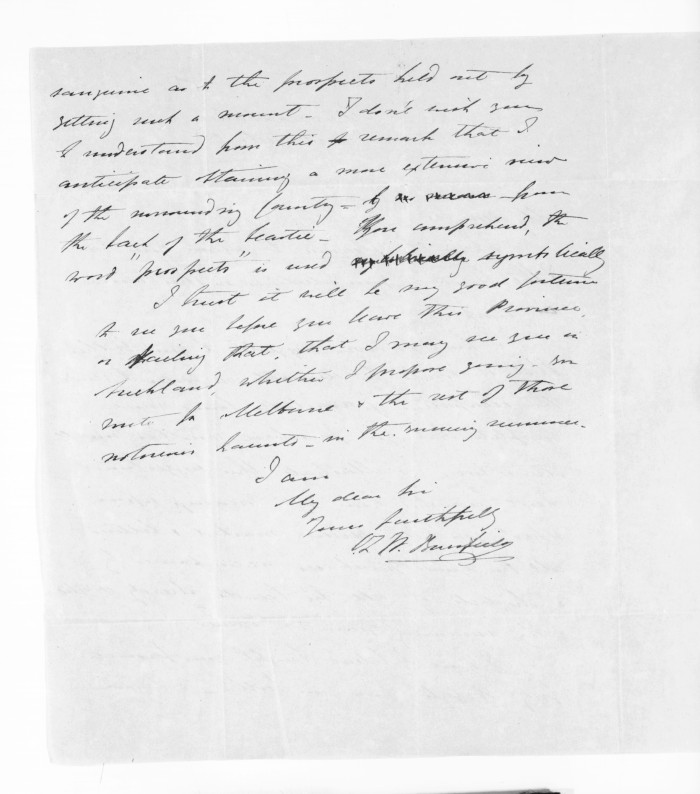 sanguine as to the prospects held out by
getting such a mount - I don't wish you
to understand from this remark that I
anticipate obtaining a more extensive view
of the surrounding Country - from
the back of the beastie - You comprehend, the
word "prospects" is used symbolically
I trust it will be my good fortune
to see you before you leave this Province,
or failing that, that I may see you in
Auckland, whither I propose going - en
route for Melbourne & the rest of those
notorious haunts - in the summer.
I am
My dear Sir
Yours faithfully